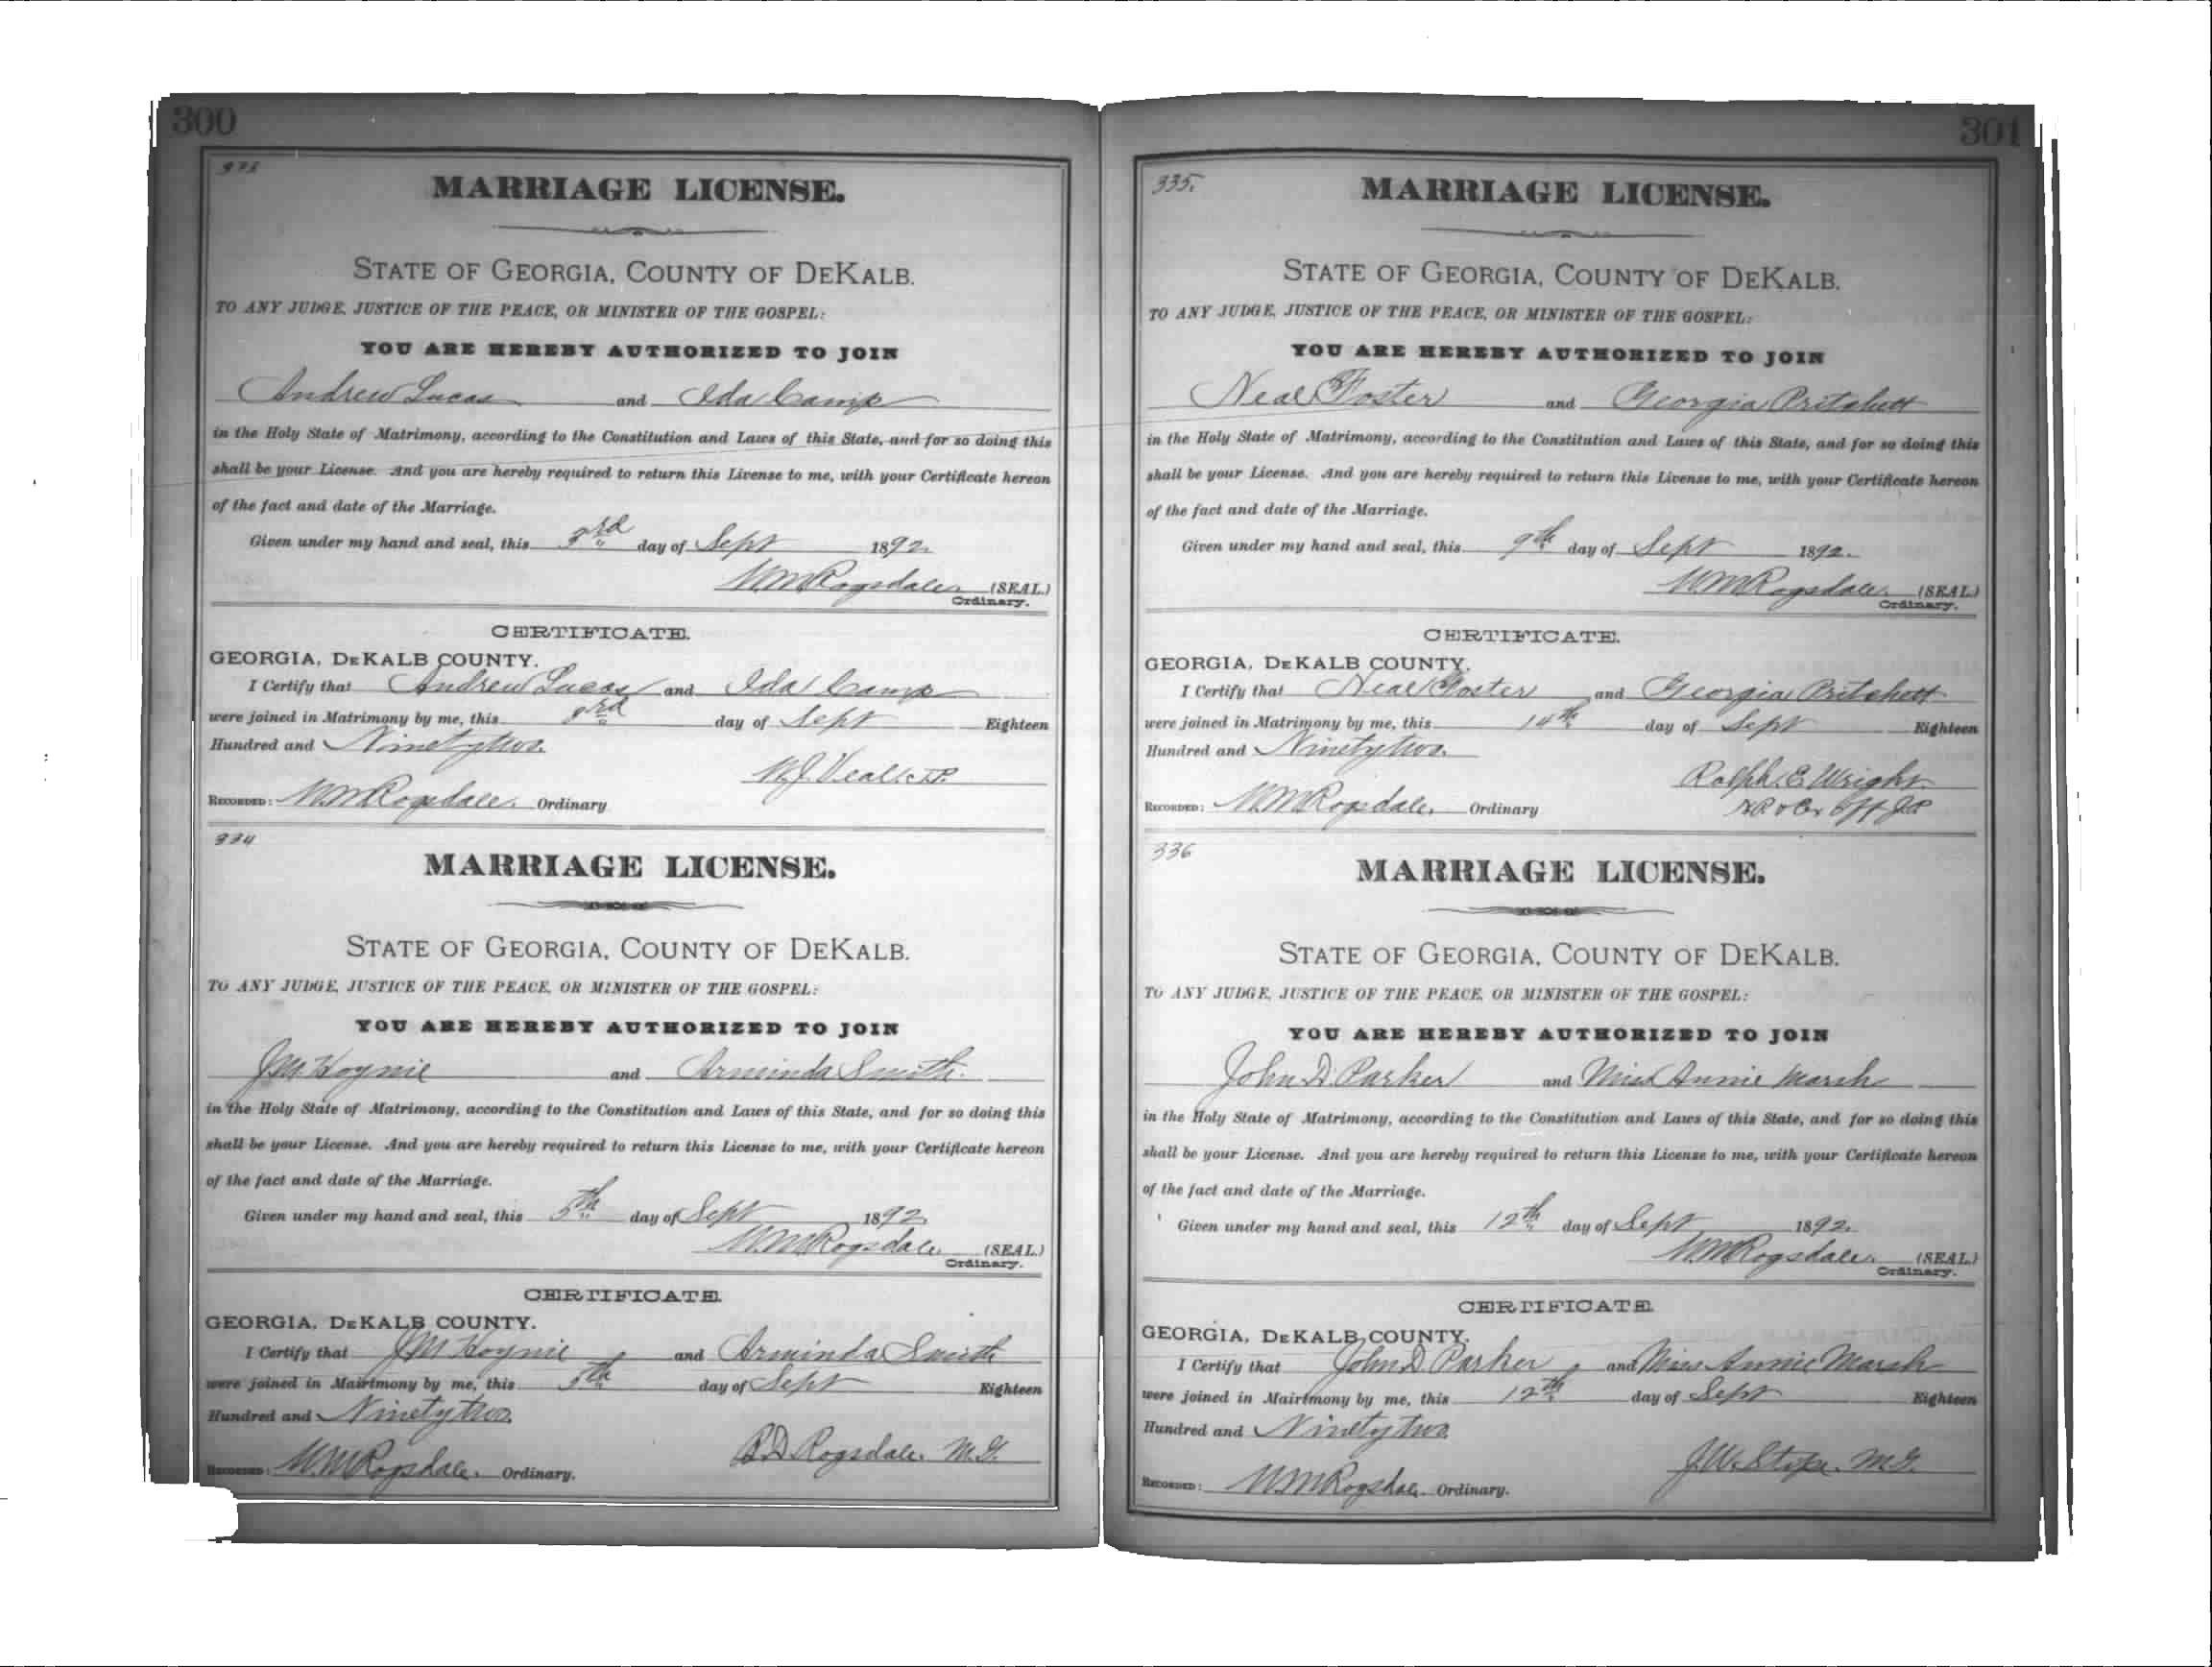 300
MARRIAGE LICENSE.
STATE OF GEORGIA, COUNTY OF DEKALB.
TO ANY JUDGE, JUSTICE OF THE PEACE, OR MINISTER OF THE GOSPEL:
YOU ARE HEREBY AUTHORIZED TO JOIN
Andrew Lucas and Ida Camp
in the Holy State of Matrimony, according to the Constitution and Laws of this State, and for so doing this
shall be your License. And you are hereby required to return this License to me, with your Certificate hereon
of the fact and date of the Marriage.
Given under my hand and seal, this 3rd day of Sept 1892.
W.M Ragsdale. (SEAL.)
Ordinary.
CERTIFICATE.
GEORGIA, DEKALB COUNTY.
I Certify that Andrew Lucas and Ida Camp
were joined in Matrimony by me, this 3rd day of Sept Eighteen
Hundred and Ninety two.
W.J. Veal J.P.
RECORDED: W.M Ragsdale. Ordinary
334
MARRIAGE LICENSE.
STATE OF GEORGIA, COUNTY OF DEKALB.
TO ANY JUDGE, JUSTICE OF THE PEACE, OR MINISTER OF THE GOSPEL:
YOU ARE HEREBY AUTHORIZED TO JOIN
J.M. Haynie and Arminda Smith.
in the Holy State of Matrimony, according to the Constitution and Laws of this State, and for so doing this
shall be your License. And you are hereby required to return this License to me, with your Certificate hereon
of the fact and date of the Marriage.
Given under my hand and seal, this 5th day of Sept 1892.
W.M Ragsdale. (SEAL.)
Ordinary.
CERTIFICATE.
GEORGIA, DEKALB COUNTY.
I Certify that J M Haynie and Arminda Smith
were joined in Mairtmony by me, this 5th day of Sept Eighteen
Hundred and Ninety two.
Ragsdale. M.G.
RECORDED: W.M Ragsdale. Ordinary.
301
335.
MARRIAGE LICENSE.
STATE OF GEORGIA, COUNTY OF DEKALB.
TO ANY JUDGE, JUSTICE OF THE PEACE, OR MINISTER OF THE GOSPEL:
YOU ARE HEREBY AUTHORIZED TO JOIN
Neal Foster and Georgia Pritchett
in the Holy State of Matrimony, according to the Constitution and Laws of this State, and for so doing this
shall be your License. And you are hereby required to return this License to me, with your Certificate hereon
of the fact and date of the Marriage.
Given under my hand and seal, this 9th day of Sept 1892.
W.M Ragsdale. (SEAL.)
Ordinary.
CERTIFICATE.
GEORGIA, DEKALB COUNTY.
I Certify that Neal Foster and Georgia Pritchett
were joined in Matrimony by me, this 14th day of Sept Eighteen
Hundred and Ninety two.
Ralph E Wright.
RECORDED: W.M Ragsdale. Ordinary
336
MARRIAGE LICENSE.
STATE OF GEORGIA, COUNTY OF DEKALB.
TO ANY JUDGE, JUSTICE OF THE PEACE, OR MINISTER OF THE GOSPEL:
YOU ARE HEREBY AUTHORIZED TO JOIN
John D. Parker and Miss Annie Marsh
in the Holy State of Matrimony, according to the Constitution and Laws of this State, and for so doing this
shall be your License. And you are hereby required to return this License to me, with your Certificate hereon
of the fact and date of the Marriage.
Given under my hand and seal, this 12th day of Sept 1892.
W.M Ragsdale. (SEAL.)
Ordinary.
CERTIFICATE.
GEORGIA, DEKALB COUNTY.
I Certify that John D Parker and Miss Annie Marsh
were joined in Mairtmony by me, this 12th day of Sept Eighteen
Hundred and Ninety two
J.W. M.G.
RECORDED: W.M Ragsdale. Ordinary.